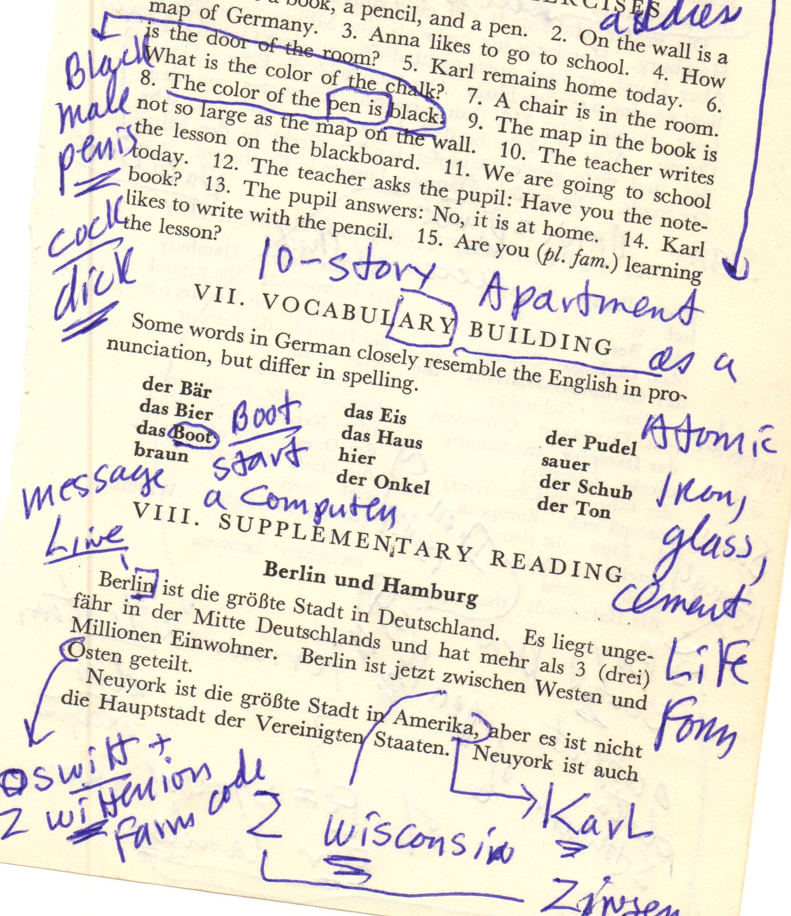 a book, a pencil, and a pen. 2. On the wall is a
address
map of Germany. 3. Anna likes to go to school. 4. How
is the door of the room? 5. Karl remains home today. 6.
What is the color of the chalk? 7. A chair is in the room.
8. The color of the pen is black. 9. The map in the book is
not so large as the map on the wall. 10. The teacher writes
the lesson on the blackboard. 11. We are going to school
today. 12. The teacher asks the pupil: Have you the note-
book? 13. The pupil answers: No, it is at home. 14. Karl
likes to write with the pencil. 15. Are you (pl. fam.) learning
the lesson?
Black
male
penis
cock
dick
10-story Apartment
VII. VOCABULARY BUILDING
as a
Some words in German closely resemble the English in pro-
nunciation, but differ in spelling.
der Bär
das Bier
das Boot
braun
Boot
start
a Computer
das Eis
das Haus
hier
der Onkel
der Pudel
sauer
der Schuh
der Ton
Atomic
Iron,
glass,
cement
Life
Form
message
Line
VIII. SUPPLEMENTARY READING
Berlin und Hamburg
Berlin ist die größte Stadt in Deutschland. Es liegt unge-
fähr in der Mitte Deutschlands und hat mehr als 3 (drei)
Millionen Einwohner. Berlin ist jetzt zwischen Westen und
Osten geteilt.
Neuyork ist die größte Stadt in Amerika, aber es ist nicht
die Hauptstadt der Vereinigten Staaten. Neuyork ist auch
farm code
Z Wisconsin
Karl